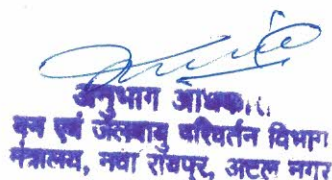 अनुभाग
वन एवं जलवायु परिवर्तन विभाग
मंत्रालय, नवा रायपुर, अटल नगर